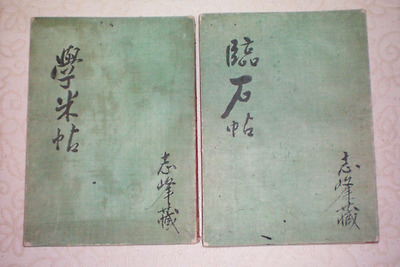 學米帖
志峰藏
臨石帖
志峰藏